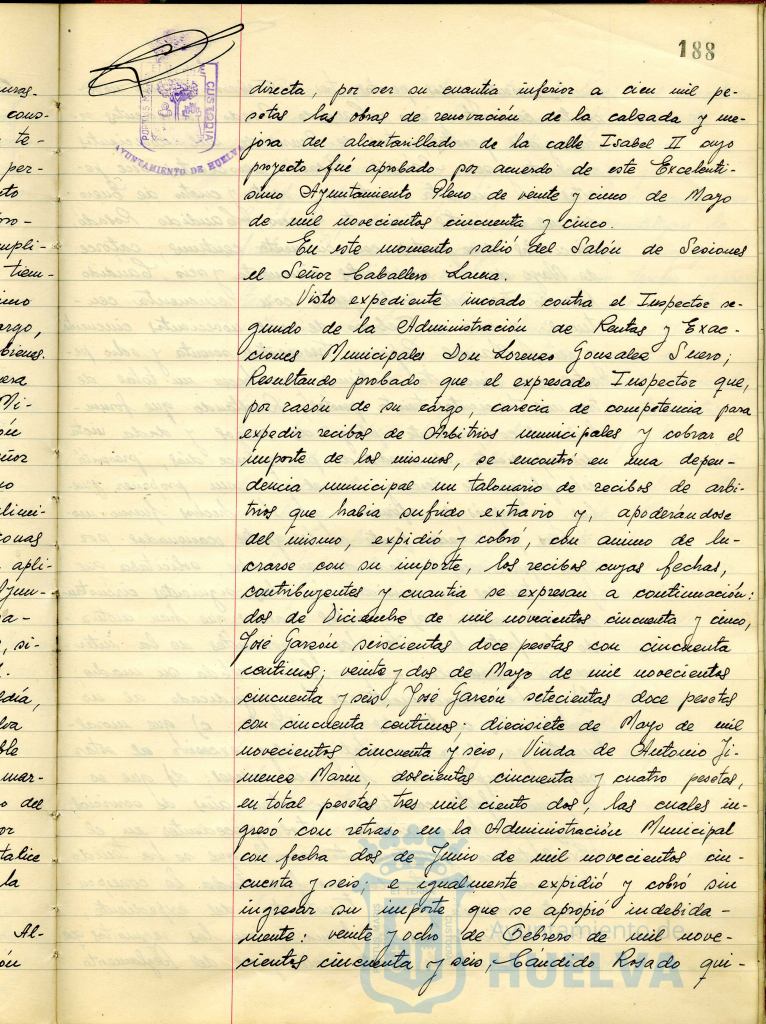 188
PORTUS MARIS
CUSTODIA
AYUNTAMIENTO DE HUELVA
directa, por ser su cuantia inferior a cien mil pe-
setas las obras de renovación de la calzada y me-
jora del alcantarillado de la calle Isabel II cuyo
proyecto fué aprobado por acuerdo de este Excelenti-
simo Ayuntamiento Pleno de veinte y cinco de Mayo
de mil novecientos cincuenta y cinco.
En este momento salió del Salón de Sesiones
el Señor Caballero
Visto expediente incoado contra el Inspector se-
gundo de la Administración de Rentas y Exac-
ciones Municipales Don Lorenzo Gonzalez Suero;
Resultando probado que el expresado Inspector que,
por razón de su cargo, carecia de competencia para
expedir recibos de Arbitrios municipales y cobrar el
importe de los mismos, se encontró en una depen-
dencia municipal un talonario de recibos de arbi-
trios que habia sufrido extravio y, apoderándose
del mismo, expidió y cobró, con animo de lu-
crarse con su importe, los recibos cuyas fechas,
contribuyentes y cuantia se expresan a continuación:
dos de Diciembre de mil novecientos cincuenta y cinco,
José Garzón seiscientas doce pesetas con cincuenta
centimos; veinte y dos de Mayo de mil novecientos
cincuenta y seis, José Garzón setecientas doce pesetas
con cincuenta centimos; diecisiete de Mayo de mil
novecientos cincuenta y seis, Viuda de Antonio Ji-
menez Marin, doscientas cincuenta y cuatro pesetas,
en total pesetas tres mil ciento dos, las cuales in-
gresó con retraso en la Administración Municipal
con fecha dos de Junio de mil novecientos cin-
cuenta y seis; e igualmente expidió y cobró sin
ingresar su importe que se apropio indebida-
mente: veinte y ocho de Febrero de mil nove-
cientos cincuenta y seis, Candido Rosado qui-
Ayuntamiento de
HUELVA